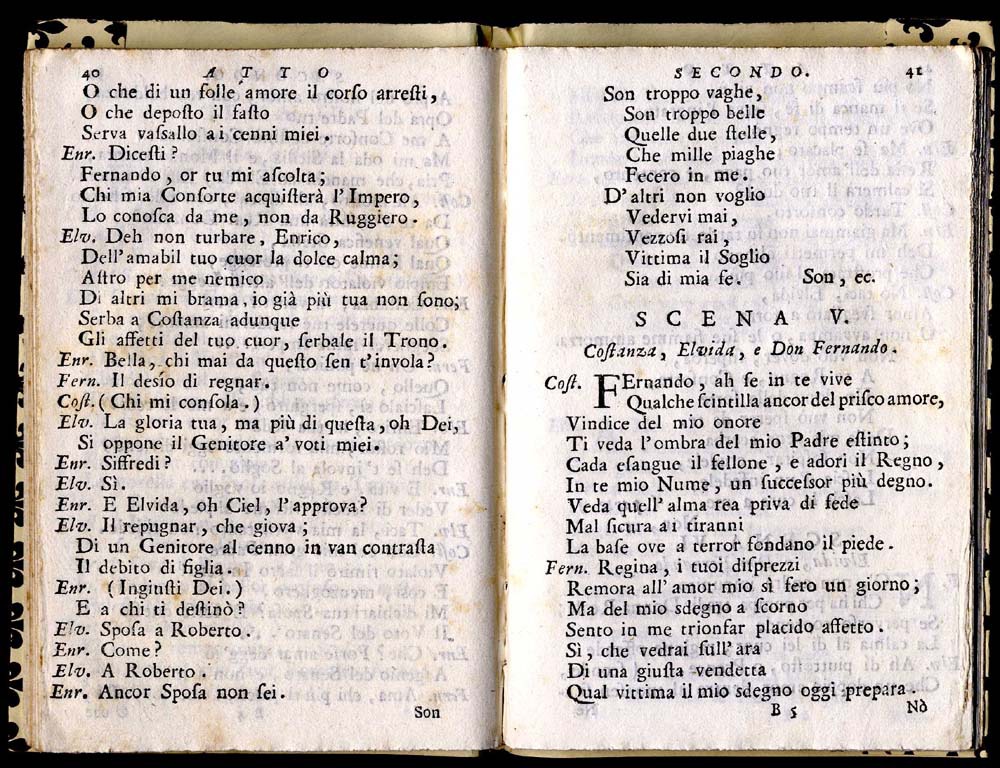 40 ATTO
O che di un folle amore il corſo arreſti,
O che depoſto il faſto
Serva vaſſallo ai cenni miei.
Enr. Diceſti?
Fernando, or tu mi aſcolta;
Chi mia Conſorte acquiſterà l'Impero,
Lo conoſca da me, non da Ruggiero.
Elv. Deh non turbare, Enrico,
Dell'amabil tuo cuor la dolce calma;
Aſtro per me nemico
Di altri mi brama, io già più tua non ſono;
Serba a Coſtanza adunque
Gli affetti del tuo cuor, ſerbale il Trono.
Enr. Bella, chi mai da queſto ſen t'invola?
Fern. Il desío di regnar.
Coſt. (Chi mi conſola.)
Elv. La gloria tua, ma più di queſta, oh Dei,
Si oppone il Genitore a' voti miei.
Enr. Siffredi?
Elv. Sì.
Enr. E Elvida, oh Ciel, l'approva?
Elv. Il repugnar, che giova;
Di un Genitore al cenno in van contraſta
Il debito di figlia.
Enr. (Ingiuſti Dei.)
E a chi ti deſtinò?
Elv. Spoſa a Roberto.
Enr. Come?
Elv. A Roberto.
Enr. Ancor Spoſa non ſei.
Son
SECONDO. 41
Son troppo vaghe,
Son troppo belle
Quelle due ſtelle,
Che mille piaghe
Fecero in me.
D'altri non voglio
Vedervi mai,
Vezzoſi rai,
Vittima il Soglio
Sia di mia fe. Son, ec.
SCENA V.
Coſtanza, Elvida, e Don Fernando.
Coſt. FErnando, ah ſe in te vive
Qualche ſcintilla ancor del priſco amore,
Vindice del mio onore
Ti veda l'ombra del mio Padre eſtinto;
Cada eſangue il fellone, e adori il Regno,
In te mio Nume, un ſucceſſor più degno.
Veda quell'alma rea priva di fede
Mal ſicura ai tiranni
La baſe ove a terror fondano il piede.
Fern. Regina, i tuoi diſprezzi
Remora all'amor mio sì fero un giorno;
Ma del mio sdegno a ſcorno
Sento in me trionfar placido affetto.
Sì, che vedrai ſull'ara
Di una giuſta vendetta
Qual vittima il mio sdegno oggi prepara.
B 5 Nò